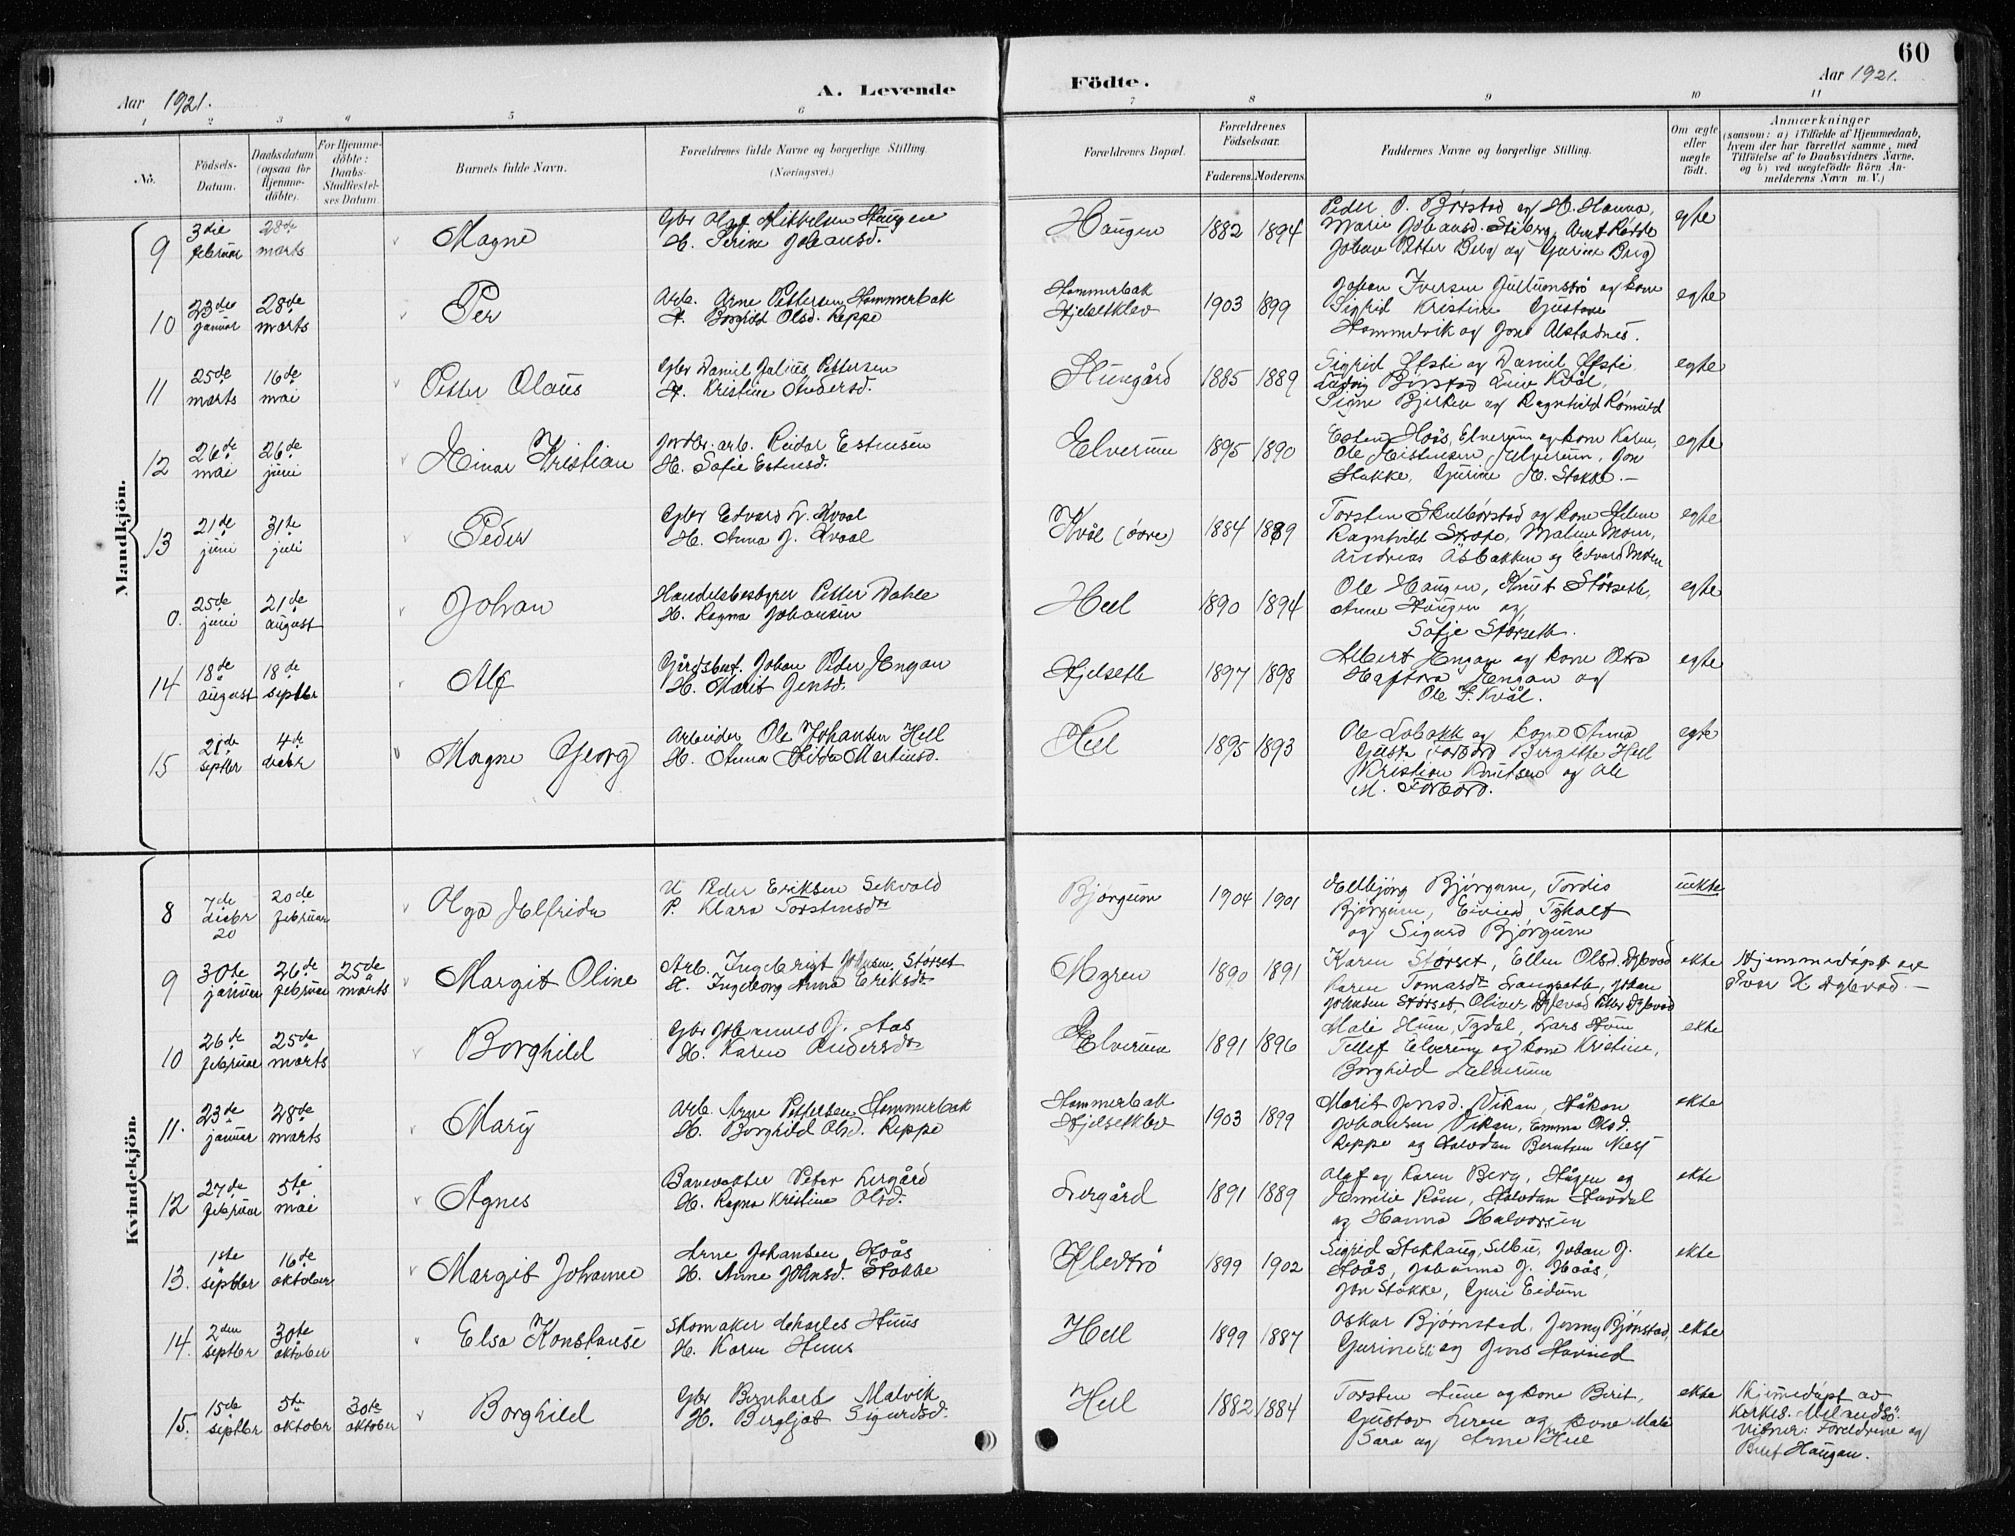 60
Aar 1921.
A. Levende
Födte.
Aar 1921.
1 2 3 4 5 6 7 8 9 10 11
No.
Födsels-Datum.
Daabsdatum (ogsaa for Hjemme-döbte).
For Hjemme-döbte: Daabs-Stadfæstel-ses Datum.
Barnets fulde Navn.
Forældrenes fulde Navne og borgerlige Stilling. (Næringsvei.)
Forældrenes Bopæl.
Forældrenes Födselsaar.
Faderens. Moderens.
Faddernes Navne og borgerlige Stilling.
Om ægte eller uægte födt.
Anmærkninger
(saasom: a) i Tilfælde af Hjemmedaab, hvem der har forrettet samme, med Tilföielse af to Daabsvidners Navne, og b) ved uægtefödte Börn An-melderens Navn m. V.)
Mandkjön.
9 3die februar 28de marts Magne
Gbr Olaf Mikkelsen Haugen
H. Perine Johansd.
Haugen 1882 1894
Peder O. Børstad og H. Hanna,
Marie Johansd. Stiberg, Arnt Rødde
Johan Petter Berg og Gurine Berg
egte
10 23de januar 28de marts Per
Arb. Arne Pettersen Hommerbak
H. Borghild Olsd. Reppe
Hommerbak Hjelseklev 1903 1899
Johan Iversen og kone
Sigrid Kristine Gustava
Hommelvik og Jone Alstadnes.
egte
11 25de marts 16de mai Petter Olaus
Gbr Daniel Julius Pettersen
H. Kristine Andersd.
1885 1889
Sigrid Øfsti og Daniel Øfsti
Ludvig Børstad Kvål,
Signe Bjerken og Ragnhild
egte
12 26de mai 26de juni Einar Kristian
Jordbr. arb. Reidar Estensen
H. Sofie Estensd.
Elverum 1895 1890
Esten Hoås, Elverum og kone Karen,
Ole Kristensen Elverum, Jon
Stokke, Gurine M. Stokke.
egte
13 21de juni 31te juli Peder
Gbr Edvard L. Kvaal
H. Anna J. Kvaal
Kvål (övre) 1884 1889
Torsten Skulbørstad og kone Ellene
Ragnhild Malene Moen,
Andreas Åsbakken og Edvard Moen
egte
0. 25de juni 21de august Johan
Handelsbestyrer Petter Dahle
H. Ragna Johansen
Hell 1890 1894
Ole Haugen, Knut Størseth,
Anne Haugen og
Sofie Størseth.
egte
14 18de august 18de septbr Alf
Gårdsbest. Johan Peder Engan
H. Marit Jensd.
Hjelseth 1897 1898
Albert Engan og kone Olea
Haftora Engan og
Ole F. Kvål.
egte
15 21de septbr 4de decbr Magne Georg
Arbeider Ole Johansen Hell
H. Anna Hilda Martinsd.
Hell 1895 1893
Ole Labakk og kone Anna
Forbord Birgitte Hell
Kristian Knutsen og Ole
M. Forbord.
egte
Kvindekjön.
8 7de decbr 20 20de februar Olga Elfrida
U. Peder Eriksen Sekvold
P. Klara Torstensdtr
Bjørgum 1904 1901
Ellbjörg Bjørgum, Tordis
Bjørgum, Eivind
og Sigurd Bjørgum
uekte
9 30te januar 26de februar 25de marts Margit Oline
Arb. Ingebrigt Johnsen Størset
H. Ingeborg Anna Eriksdtr
Myren 1890 1891
Karen Størset, Ellen Olsd. Dyblevad
Karen Tomasdtr Langseth, Johan
Johnsen Størset Oliver
ekte
Hjemmedøpt av
Ivar H.
10 26de februar 25de marts Borghild
Gbr Johannes J. Aas
H. Karen Andersdtr
Elverum 1891 1896
Male Huen, Tydal, Lars
Tellef Elverum og kone Kristine,
Borghild Elverum
ekte
11. 23de januar 28de marts Mary
Arb. Arne Pettersen Hommerbak
H. Borghild Olsd. Reppe
Hommerbak Hjelseklev 1903 1899
Marit Jensd. Vikan, Håkon
Johansen Vikan, Emma Olsd.
Reppe og Halvdan Berntsen
ekte
12 27de februar 5te mai Agnes
Banevokter Peter Lergård
H. Ragna Kristine Olsd.
Lergård 1891 1889
Olaf og Karen Berg, Hågen og
Emilie Halvdan
og Hanna Halvorsen
ekte
13. 1ste septbr 16de oktober Margit Johanne
Arne Johansen Hoås
H. Anne Johnsd. Stokke
Kledtrö 1899 1902
Sigrid Stokhaug, Selbu, Johan J.
Hoås, Johanna J. Hoås,
Jon Stokke, Guri Eidum
ekte
14. 2den septbr 30te oktober Elsa Konstanse
Skomaker Charles Huus
H. Karen Huus
Hell 1899 1887
Oskar Bjørnstad, Jenny Bjønstad
Gurine og Jens
ekte
15. 15de septbr 5te oktober 30te oktober Borghild
Gbr Bernhard Malvik
H. Bergljot Sigurdsd.
Hell 1882 1884
Torsten og kone Berit,
Gustav Leren og kone Male
Sara og Arne Hell
ekte
Hjemedøpt av
Kirkes.
Vitner: Foreldrene og
Haugan.